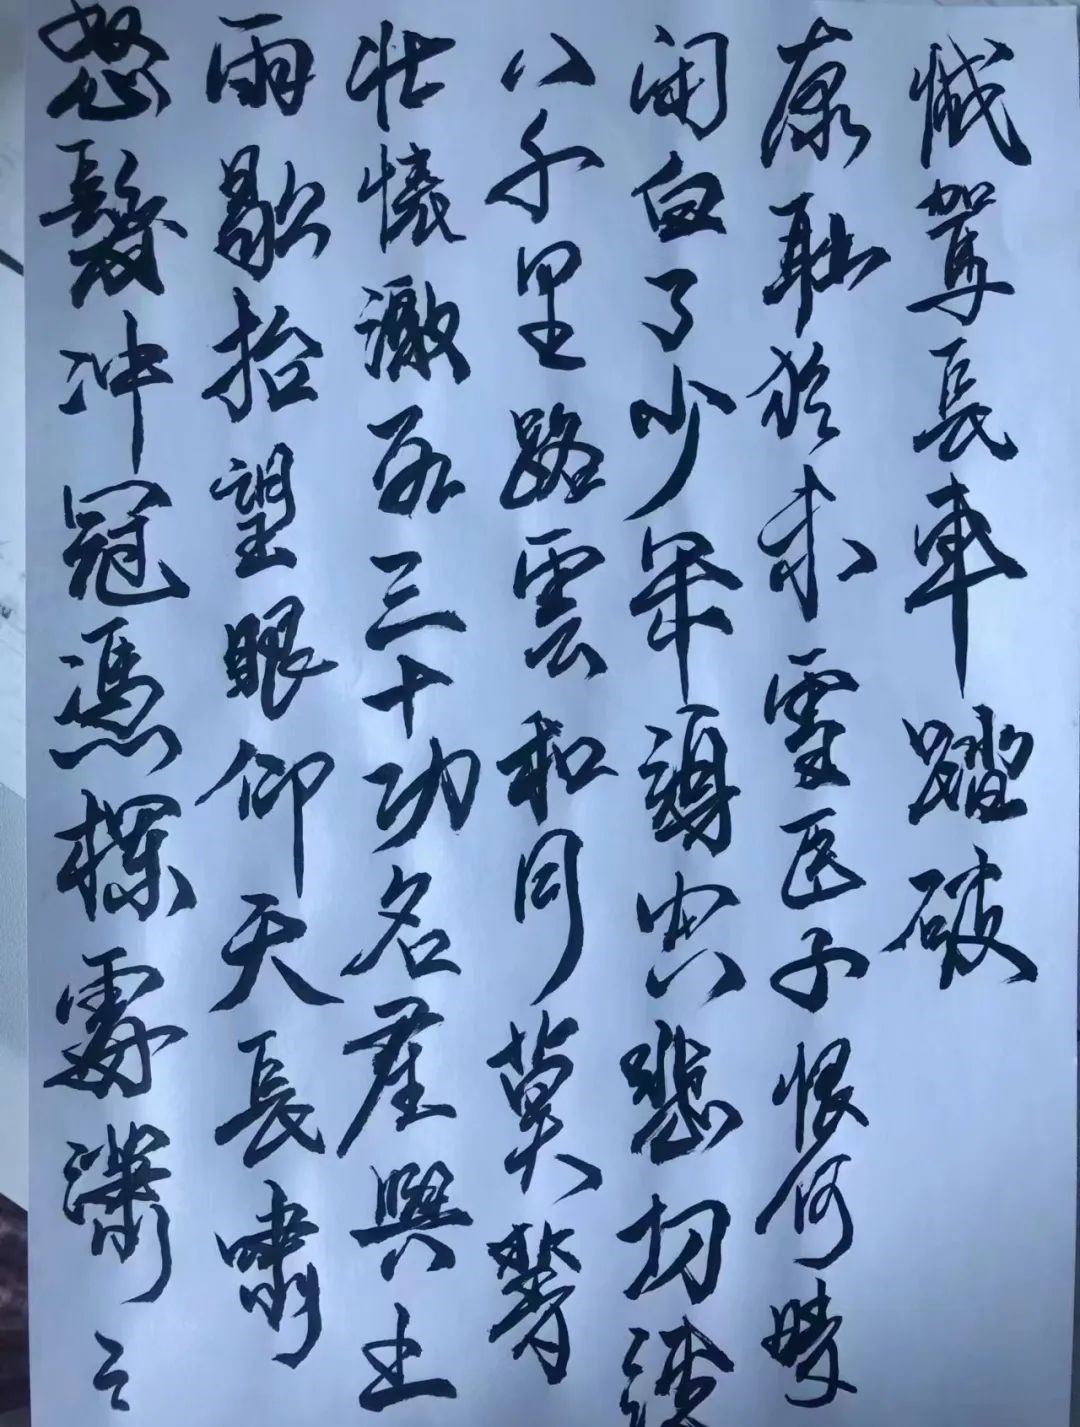 怒髮冲冠憑欄處瀟々
雨歇抬望眼仰天長嘯
壯懷激烈三十功名塵與土
八千里路雲和月莫等
閑白了少年頭空悲切靖
康耻猶未雪臣子恨何時
滅駕長車踏破